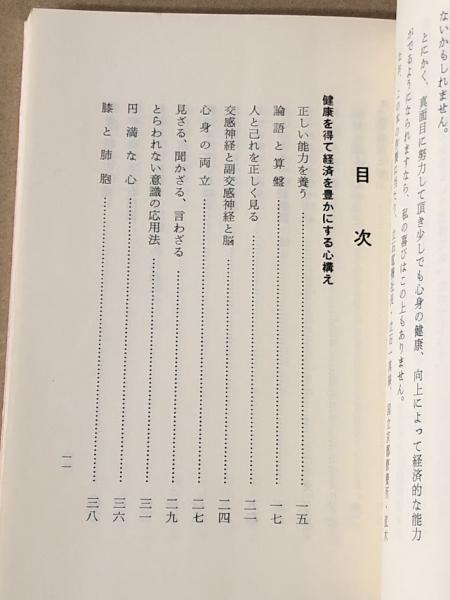 ないかもしれません。
とにかく、真面目に努力して頂き少しでも心身の健康、向上によって経済的な能力
がでるようになられますなら、私の喜びはこの上もありません。
目次
健康を得て経済を豊かにする心構え
正しい能力を養う……一五
論語と算盤……一七
人と己れを正しく見る……二一
交感神経と副交感神経と脳……二四
心身の両立……二七
見ざる、聞かざる、言わざる……二九
とらわれない意識の応用法……三一
円満な心……三六
膝と肺胞……三八
一一